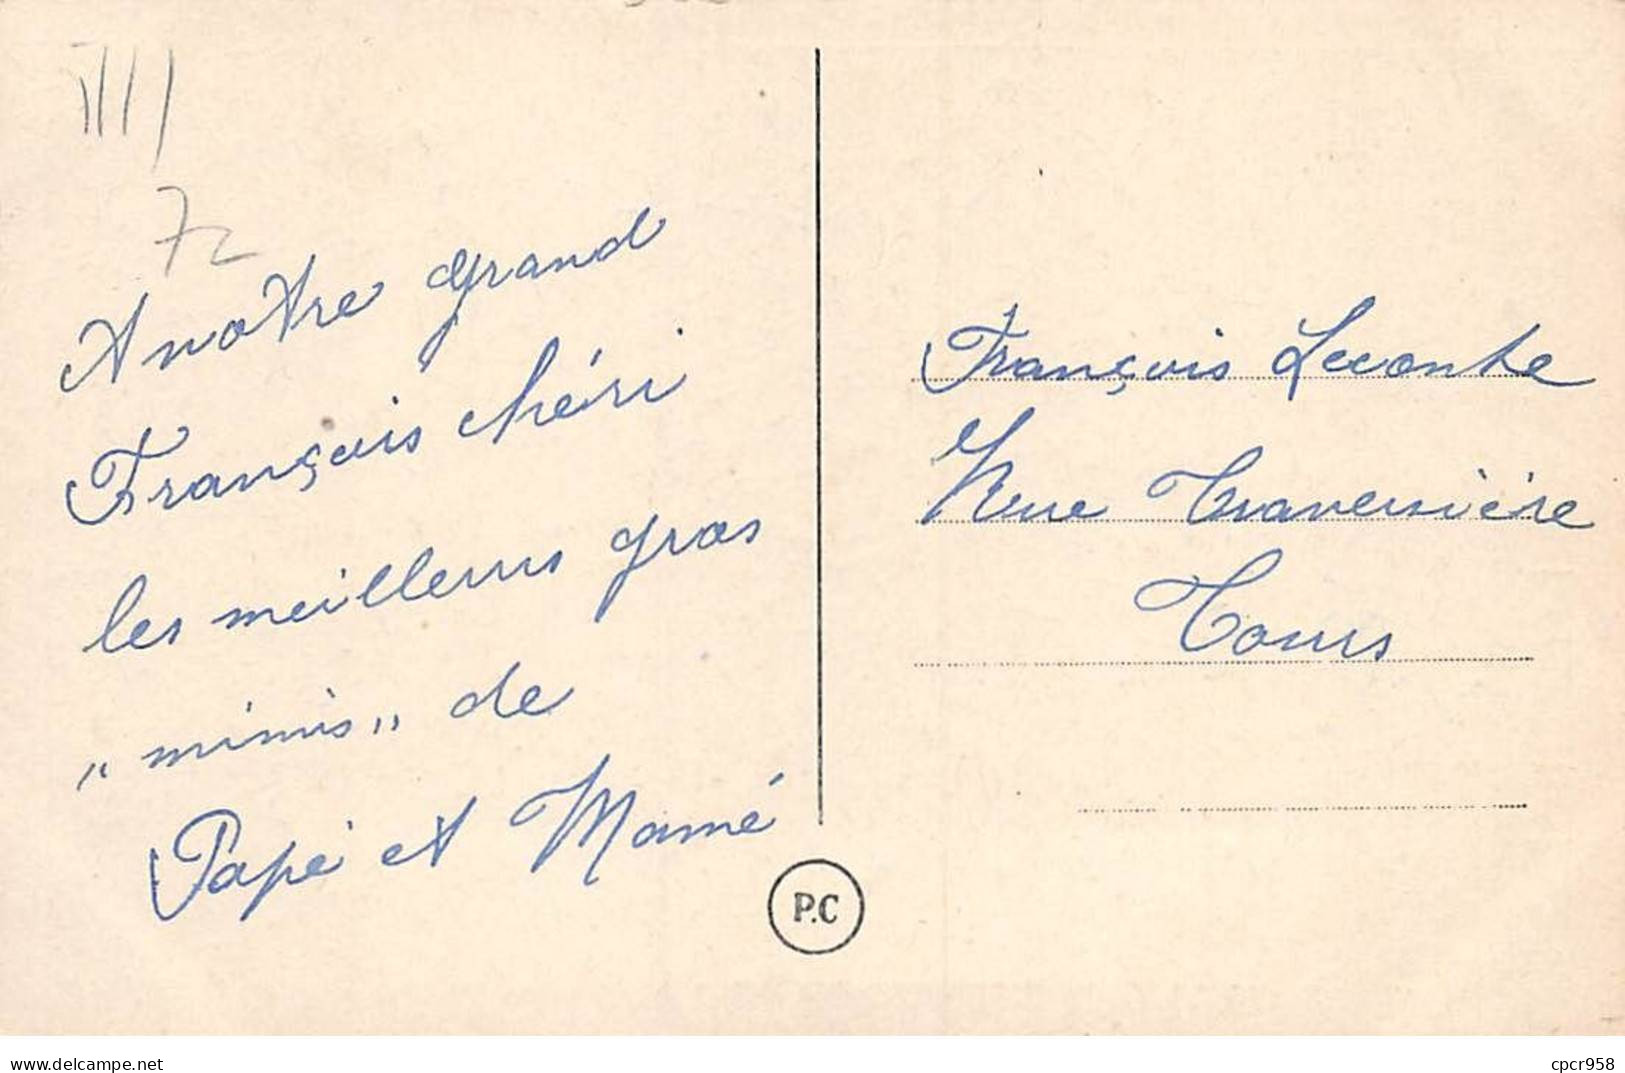 72
A notre grand
François chéri
les meilleurs gros
"mimis" de
Papé et Mamé
François Leconte
Rue Traversière
Tours
P.C
www.delcampe.net
cpcr958